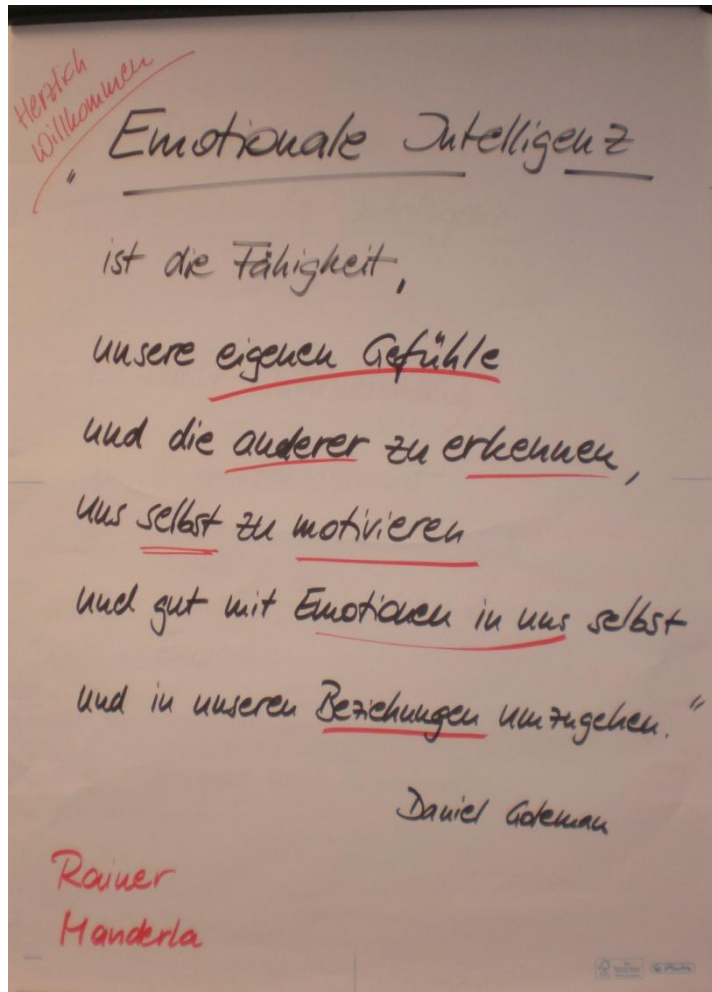 Herzlich
Willkommen
„Emotionale Intelligenz
ist die Fähigkeit,
unsere eigenen Gefühle
und die anderer zu erkennen,
uns selbst zu motivieren
und gut mit Emotionen in uns selbst
und in unseren Beziehungen umzugehen.“
Daniel Goleman
Rainer
Manderla